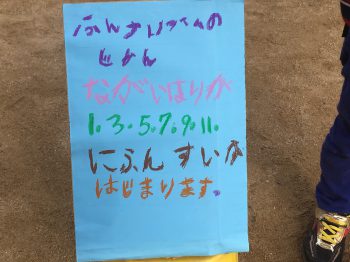 ふんすいタイムの
じかん
ながいはりが
1.3.5.7.9.11.
にふんすいが
はじまります。